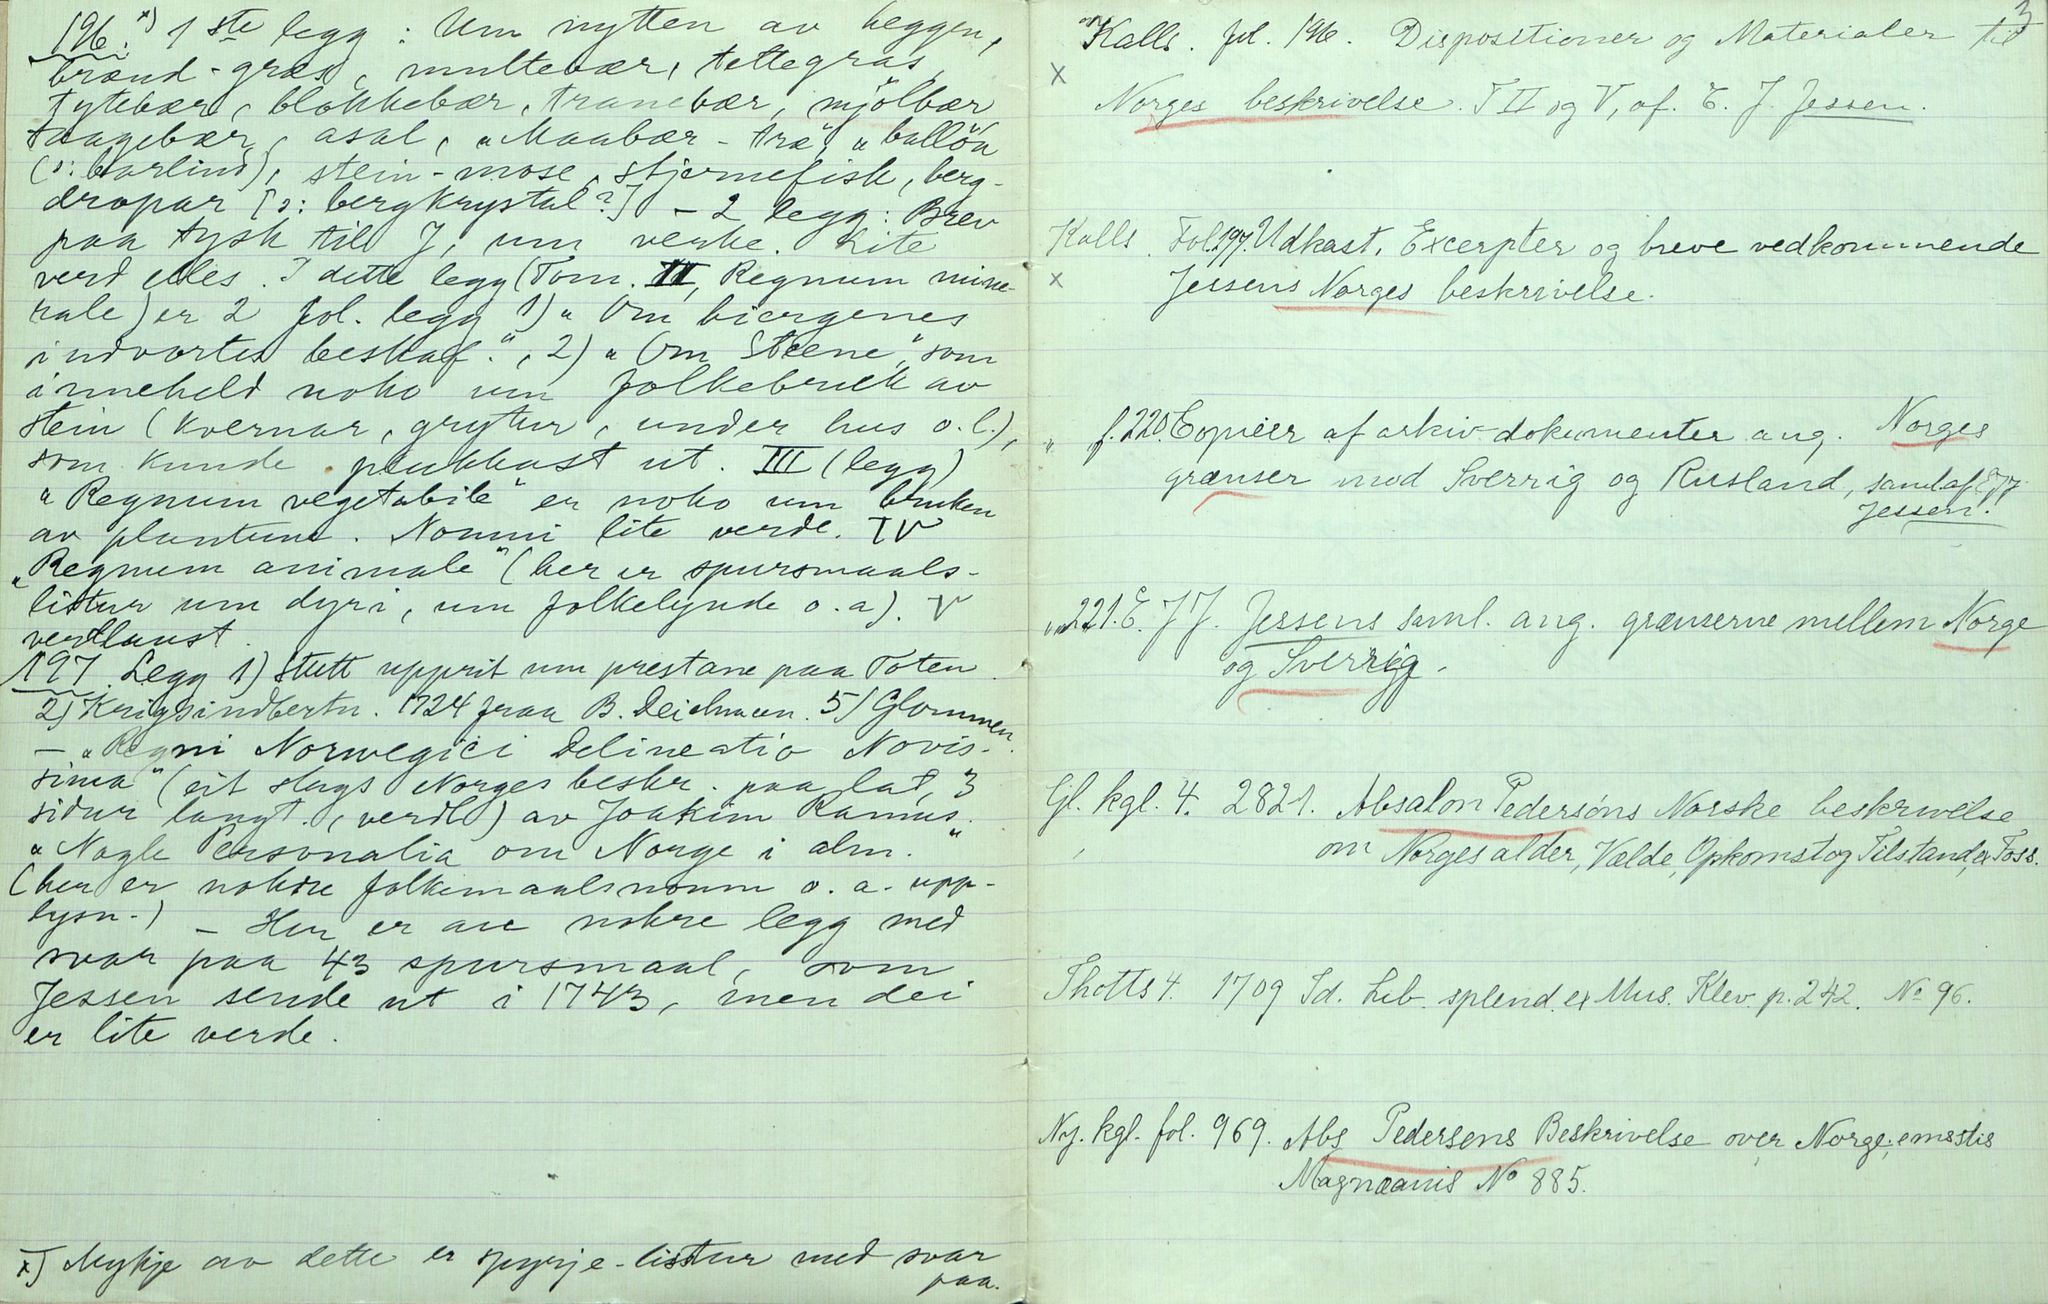 196. x) 1ste legg: Um nytten av heggen,
brænd-gras, multebær, tettegras,
tytebær, blokkebær, tranebær, mjölbær
taagebær, asal, „Maabær-træ", „ballöa
(ɔ: barlind), stein-mose, stjernefisk, berg-
dropar [ɔ: bergkrystal?] – 2 legg: Brev
paa tysk til J, um verke. Lite
verd elles. I dette legg (Tom. II, Regnum mine-
rale) er 2 fol. legg 1) „Om biergenes
indvortes beskaf.", 2) „Om Steene", som
inneheld noko um folkebruk av
stein (kvernar, grytur, under hus o.l.),
som kunde plukkast ut. III (legg)
„Regnum vegetabile" er noko um bruken
av planturne. Nomni lite verde. IV
„Regnum animale" (her er spursmaals-
listur um dyri, um folkelynde o.a). V
verdlaust.
197. Legg 1) Stutt upprit um prestane paa Toten.
2) Krigsindbertn. 1724 fraa B. Deichmann. 5) Glommen.
– „Regni Norwegici Delineatio Novis-
sima" (eit slags Norges beskr. paa lat, 3
sidur langt, verdl) av Joakim Ramus.
„Nogle Personalia om Norge i alm."
(her er nokre folkemaalsnomn o.a. upp-
lysn.) – Her er au nokre legg med
svar paa 43 spursmaal, som
Jessen sende ut i 1743, men dei
er lite verde.
x) Mykje av dette er spyrje-listur med svar
paa.
3
Kalls. fol. 196. Dispositioner og Materialer til
x
Norges beskrivelse. T II og V, af. E. J. Jessen.
Kalls. Fol. 197. Udkast, Excerpter og breve vedkommende
x
Jessens Norges beskrivelse.
„ f. 220. Copieer af arkiv-dokumenter ang. Norges
grænser mod Sverrig og Rusland, saml af E J J
Jessen.
„ „ 221. E. J J. Jessens saml. ang. grænserne mellem Norge
og Sverrig.
Gl. kgl. 4. 2821. Absalon Pedersøns Norske beskrivelse
om Norges alder, Vælde, Opkomst og Tilstand, ex Foss.
Thotts 4. 1709 Id. Lib. splend. ex Mus. Klev. p. 242. No 96.
Ny. kgl. fol. 969. Abs Pedersens Beskrivelse over Norge; e msstis
Magnæanis No 885.